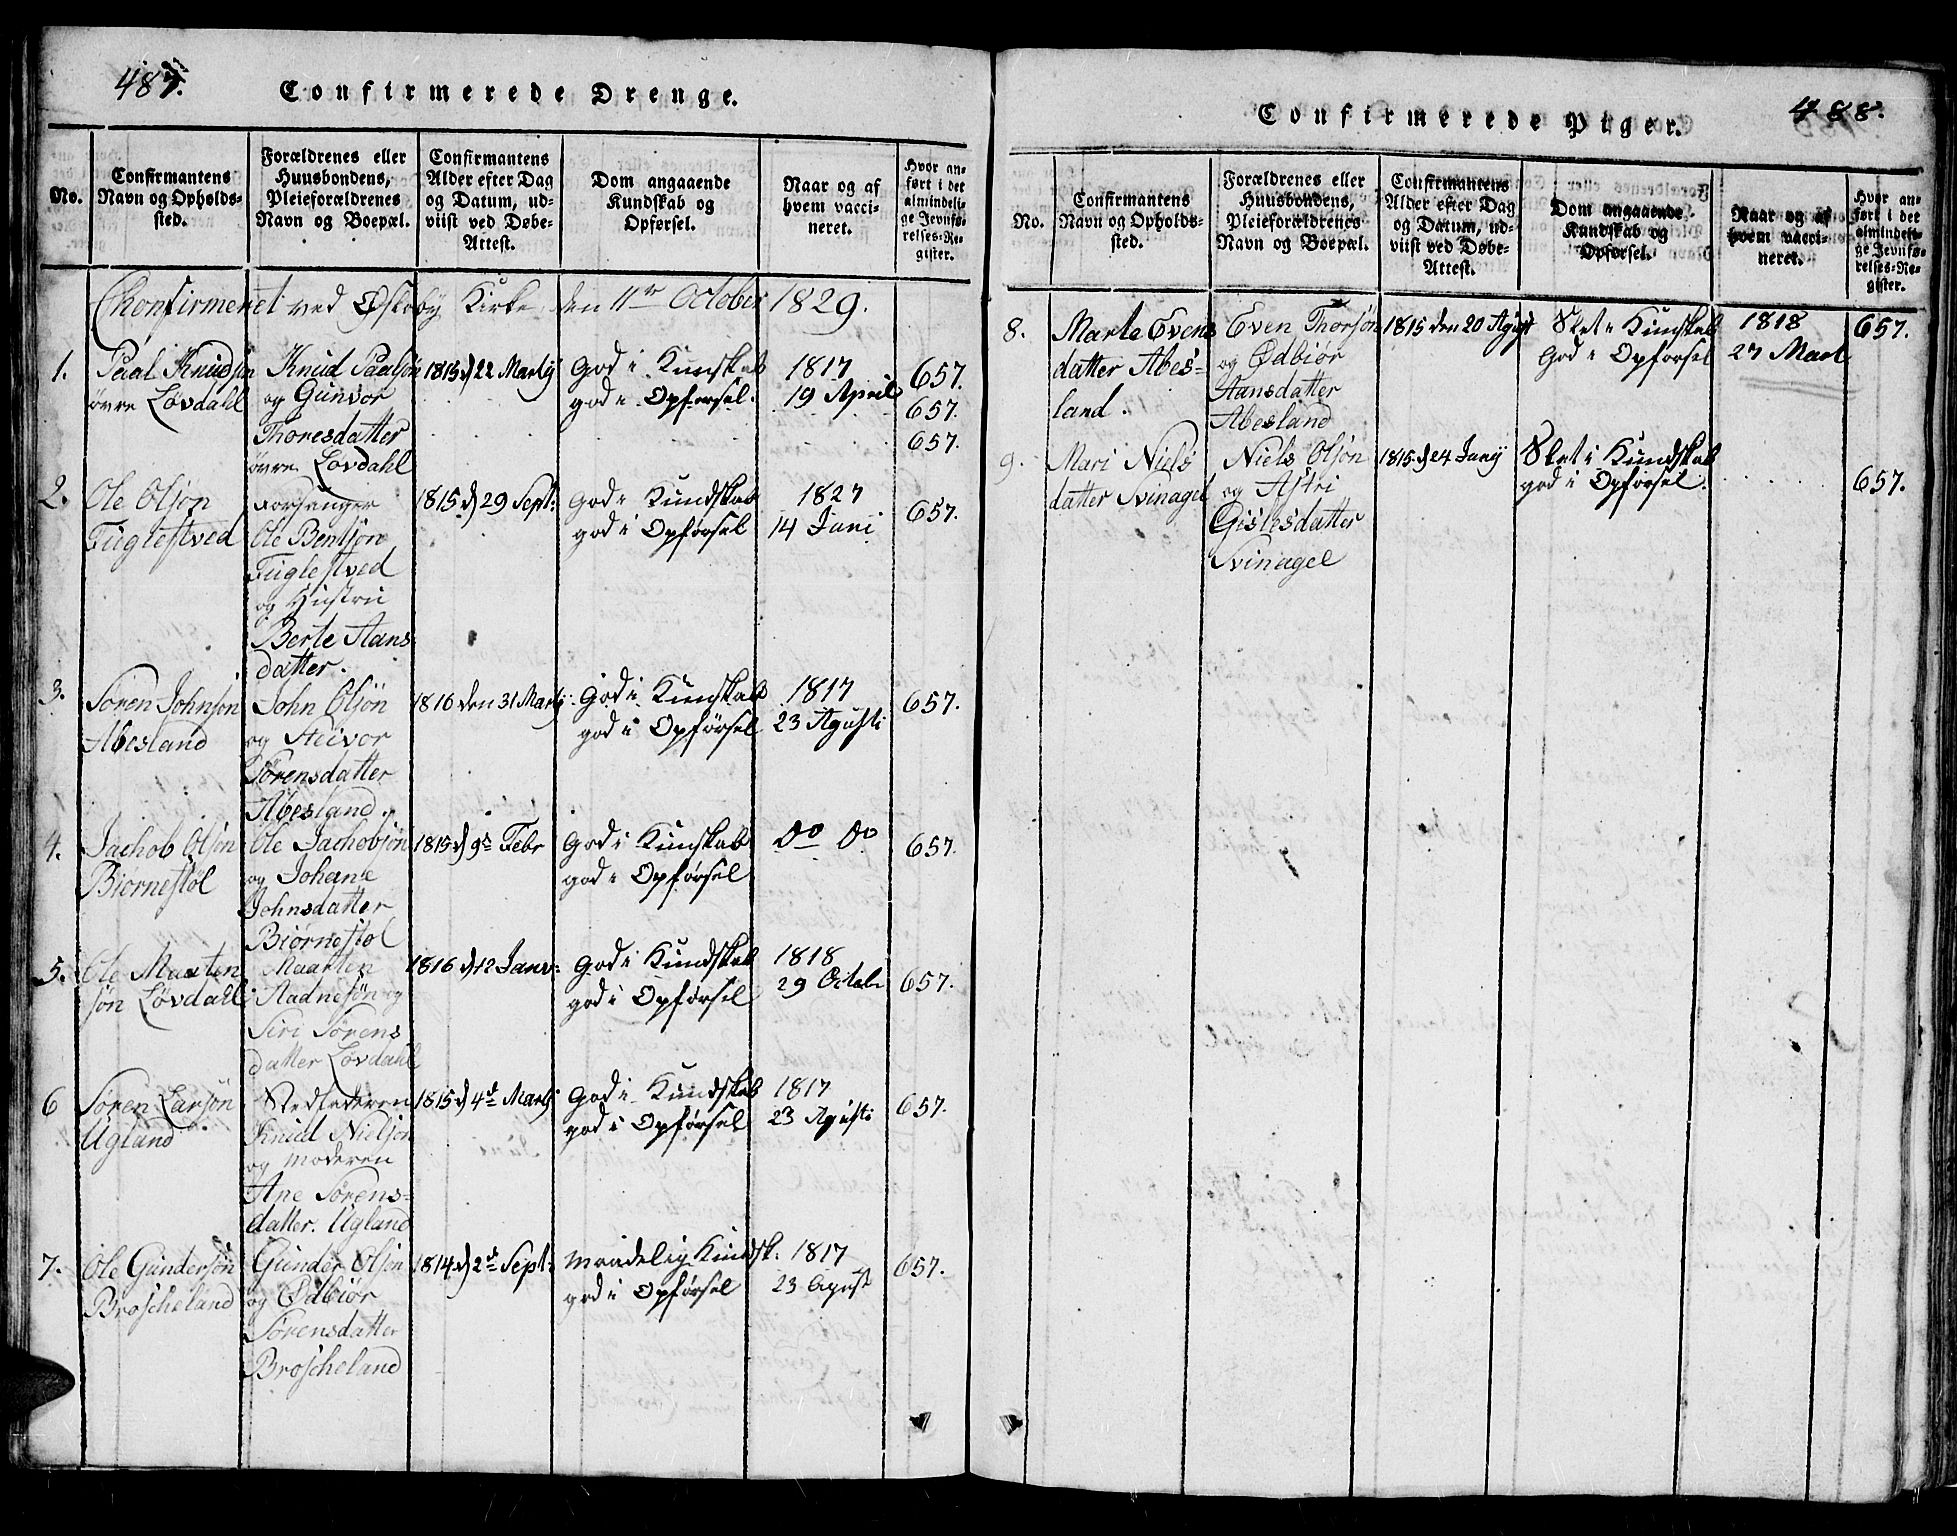 487.
Confirmerede Drenge.
No.
Confirmantens
Navn og Opholds-
sted.
Forældrenes eller
Huusbondens,
Pleieforældrenes
Navn og Boepæl.
Confirmantens
Alder efter Dag
og Datum, ud-
viist ved Døbe-
Attest.
Dom angaaende
Kundskab og
Opførsel.
Naar og af
hvem vacci-
neret.
Hvor an-
ført i det
almindeli-
ge Jevnfø-
relses-Re-
gister.
Chonfirmeret ved Øsleby Kirke den 11te October 1829.
1.
Paal Knudsøn
øvre Løvdahl
Knud Paalsøn
og Gunvor
Thoresdatter
øvre Løvdahl
1815 d 22 Martij
god i Kunskab
god i Opførsel.
1817
19 April
657.
657.
657.
2.
Ole Olsøn
Fuglestved
Forsanger
Ole Bentsøn
Fuglestved
og Hustru
Berte Aans
datter.
1815 d 29 Sept:
god i Kundskab
god i Opførsel
1827
14 Juni
657.
3.
Søren Johnsøn
Abesland
John Olsøn
og Aeivor
Sørensdatter
Abesland.
1816 den 31 Martij
god i Kunskab
god i Opførsel
1817
23 Agusti
657.
4.
Jachob Olsøn
Biørnestøl
Ole Jachobsøn
og Johane
Johnsdatter
Biørnestøl
1815 d 9de Febr
god i Kunskab
god i Opførsel
do do
657.
5.
Ole Maarten
søn Løvdahl
Maarten
Aadnesøn og
Siri Sørens
datter Løvdahl
1816 d 12 Janv:
god i Kundskab
god i Opførsel
1818
29 Octob
657.
6
Søren Larsøn
Ugland
Stedfaderen
Knud Nielsøn
og Moderen
Ane Sørens-
datter. Ugland
1815 d 4de Martij
god i Kundskab
god i Opførsel
1817
23 Agusti
657.
7.
Ole Gundersøn
Broscheland
Gunder Olsøn
og Ødbiør
Sørensdatter
Broscheland
1814 d 2de Sept:
maadelig Kundsk:
god i Opførsel
1817
23 Agust
657.
488.
Confirmerede Piger.
No.
Confirmantens
Navn og Opholds-
sted.
Forældrenes eller
Huusbondens,
Pleieforældrenes
Navn og Boepæl.
Confirmantens
Alder efter Dag
og Datum, ud-
viist ved Døbe-
Attest.
Dom angaaende
Kundskab og
Opførsel.
Naar og af
hvem vacci-
neret.
Hvor an-
ført i det
almindeli-
ge Jevnfø-
relses-Re-
gister.
8.
Marte Evens
datter Abes-
land.
Even Thorsøn
og Ødbiør
Aansdatter
Abesland
1815 den 20 Agust
Slet i Kunskab
God i Opførsel
1818
27 Mart
657.
9.
Mari Niels
datter Svinagel
Niels Olsøn
og Astri
Gislesdatter
Svinagel
1815 d 24 Junij
Slet i Kundskab
god i Opførsel.
657.